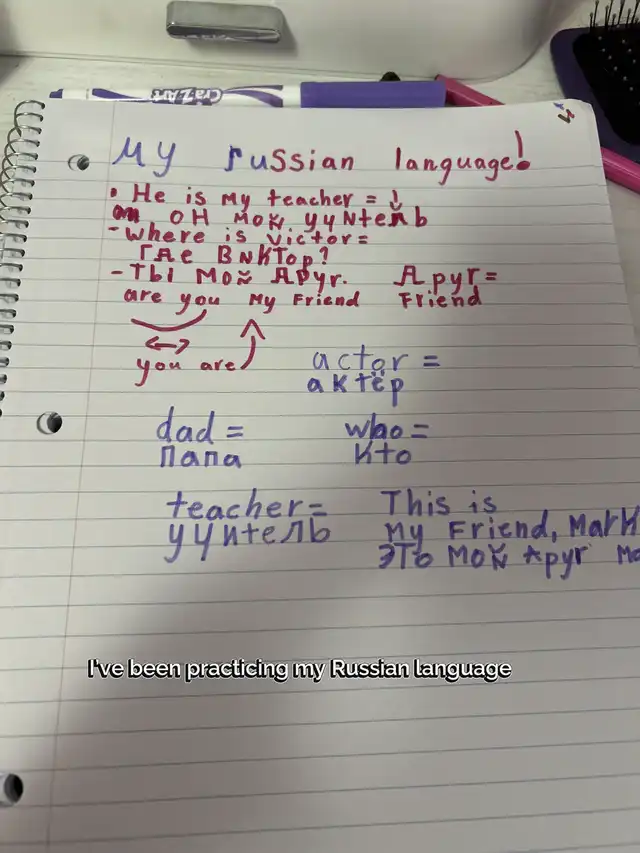 CraZArt
My russian language!
• He is My teacher =
он мой учитель
- where is victor=
где виктор?
- ты мой друг. друг=
are you My Friend Friend
you are
actor =
актёр
dad = who =
папа кто
teacher= This is
учитель My Friend, Mark
это мой друг Ма
I've been practicing my Russian language